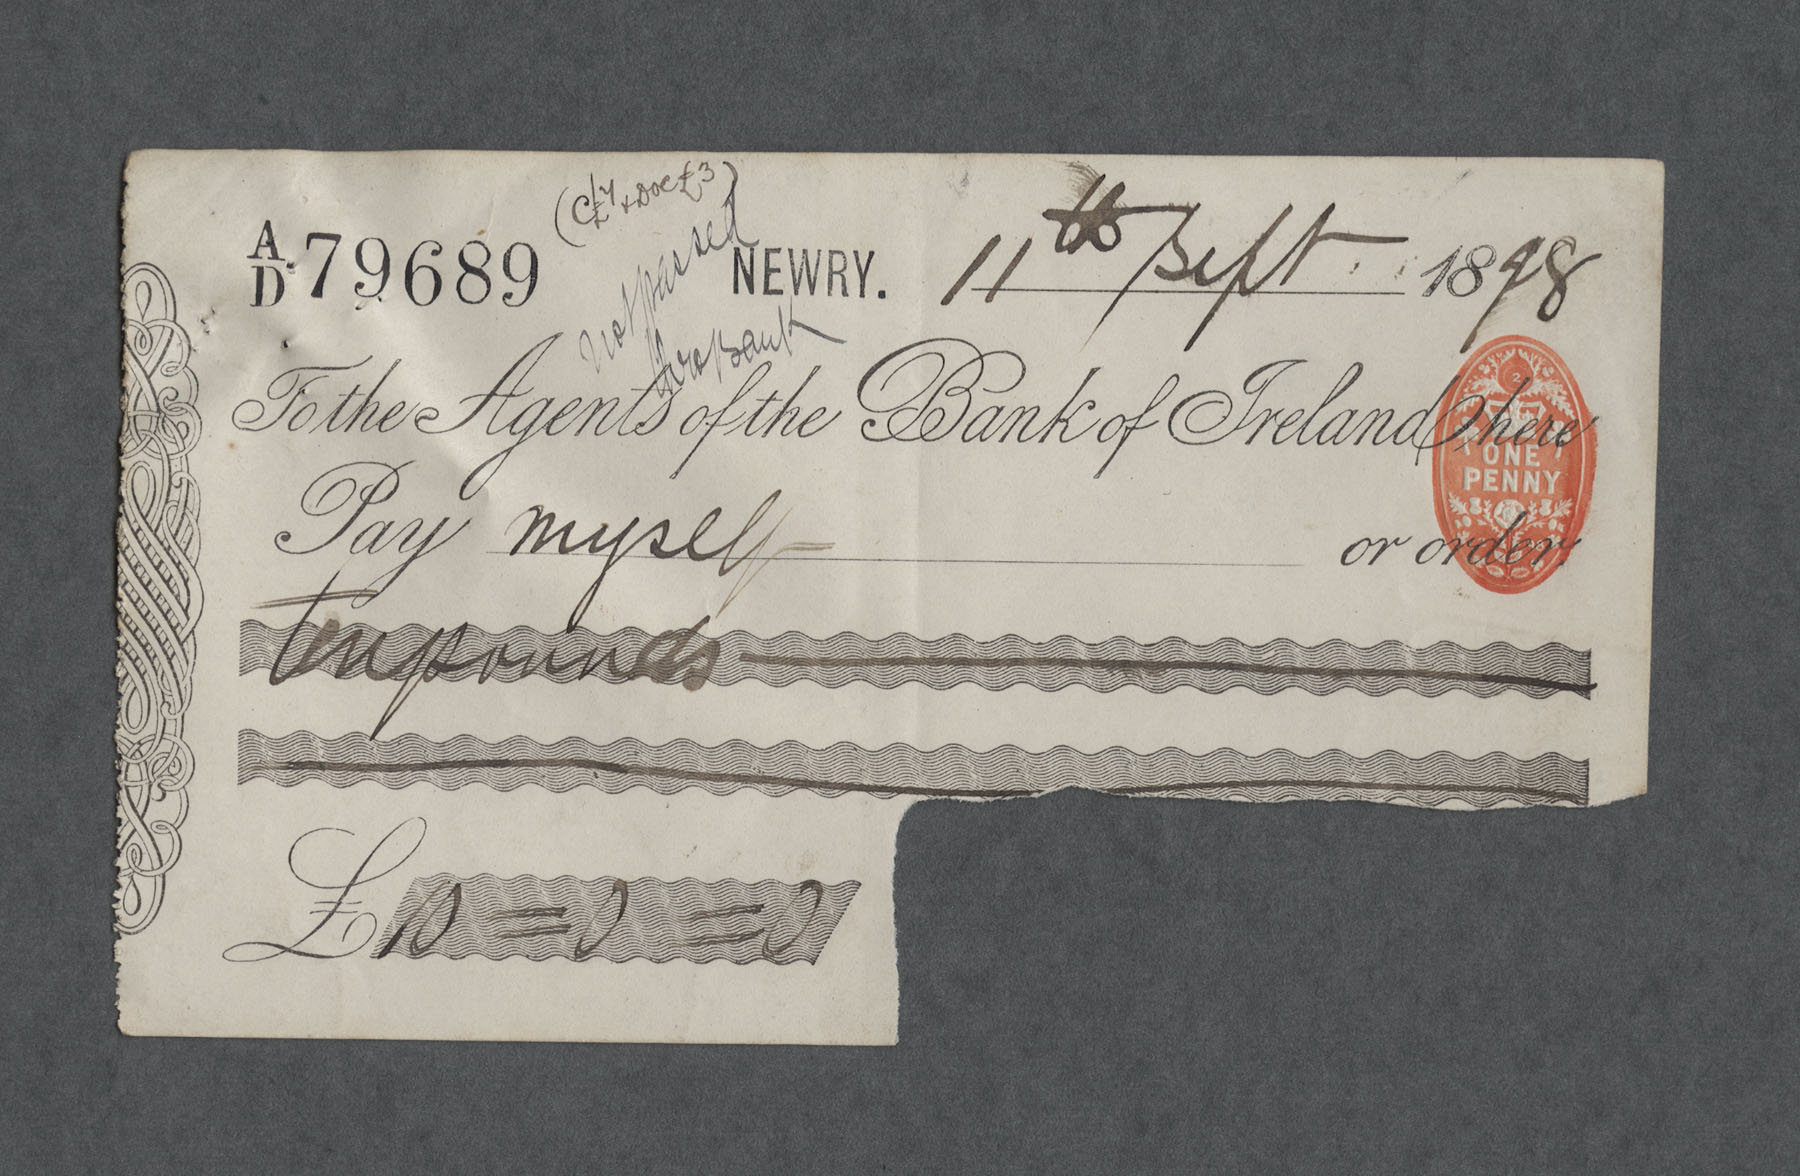 (C £7 + Doc £3)
Not passed
thro Bank
A/D 79689 NEWRY. 11th Sept 1898
To the Agents of the Bank of Ireland here
ONE
PENNY
Pay myself or order,
Ten pounds
£10 = 0 = 0